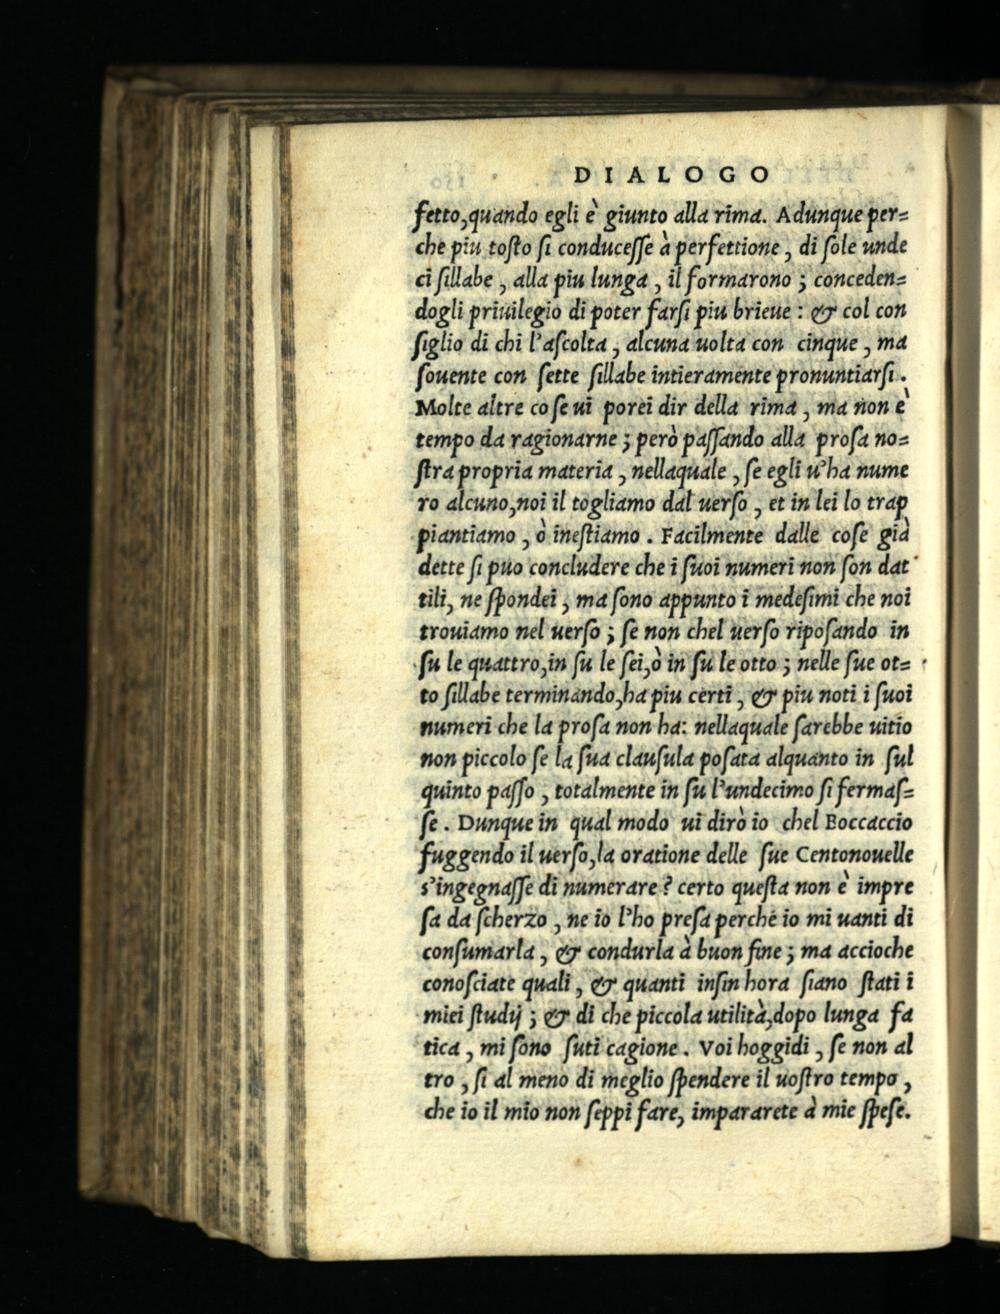 DIALOGO
fetto,quando egli è giunto alla rima. Adunque per=
che piu toſto ſi conduceſſe à perfettione, di ſole unde
ci ſillabe, alla piu lunga, il formarono; conceden=
dogli priuilegio di poter farſi piu brieue: & col con
ſiglio di chi l'aſcolta, alcuna uolta con cinque, ma
ſouente con ſette ſillabe intieramente pronuntiarſi.
Molte altre coſe ui porei dir della rima, ma non è
tempo da ragionarne; però paſſando alla proſa no=
ſtra propria materia, nellaquale, ſe egli u'ha nume
ro alcuno,noi il togliamo dal uerſo, et in lei lo trap
piantiamo, ò ineſtiamo. Facilmente dalle coſe già
dette ſi puo concludere che i ſuoi numeri non ſon dat
tili, ne ſpondei, ma ſono appunto i medeſimi che noi
trouiamo nel uerſo; ſe non chel uerſo ripoſando in
ſu le quattro,in ſu le ſei,ò in ſu le otto; nelle ſue ot=
to ſillabe terminando,ha piu certi, & piu noti i ſuoi
numeri che la proſa non ha: nellaquale ſarebbe uitio
non piccolo ſe la ſua clauſula poſata alquanto in ſul
quinto paſſo, totalmente in ſu l'undecimo ſi fermaſ=
ſe. Dunque in qual modo ui dirò io chel Boccaccio
fuggendo il uerſo,la oratione delle ſue Centonouelle
s'ingegnaſſe di numerare? certo queſta non è impre
ſa da ſcherzo, ne io l'ho preſa perche io mi uanti di
conſumarla, & condurla à buon fine; ma accioche
conoſciate quali, & quanti inſin hora ſiano ſtati i
miei ſtudij; & di che piccola utilità,dopo lunga fa
tica, mi ſono ſuti cagione. Voi hoggidi, ſe non al
tro, ſi al meno di meglio ſpendere il uoſtro tempo,
che io il mio non ſeppi fare, impararete à mie ſpeſe.